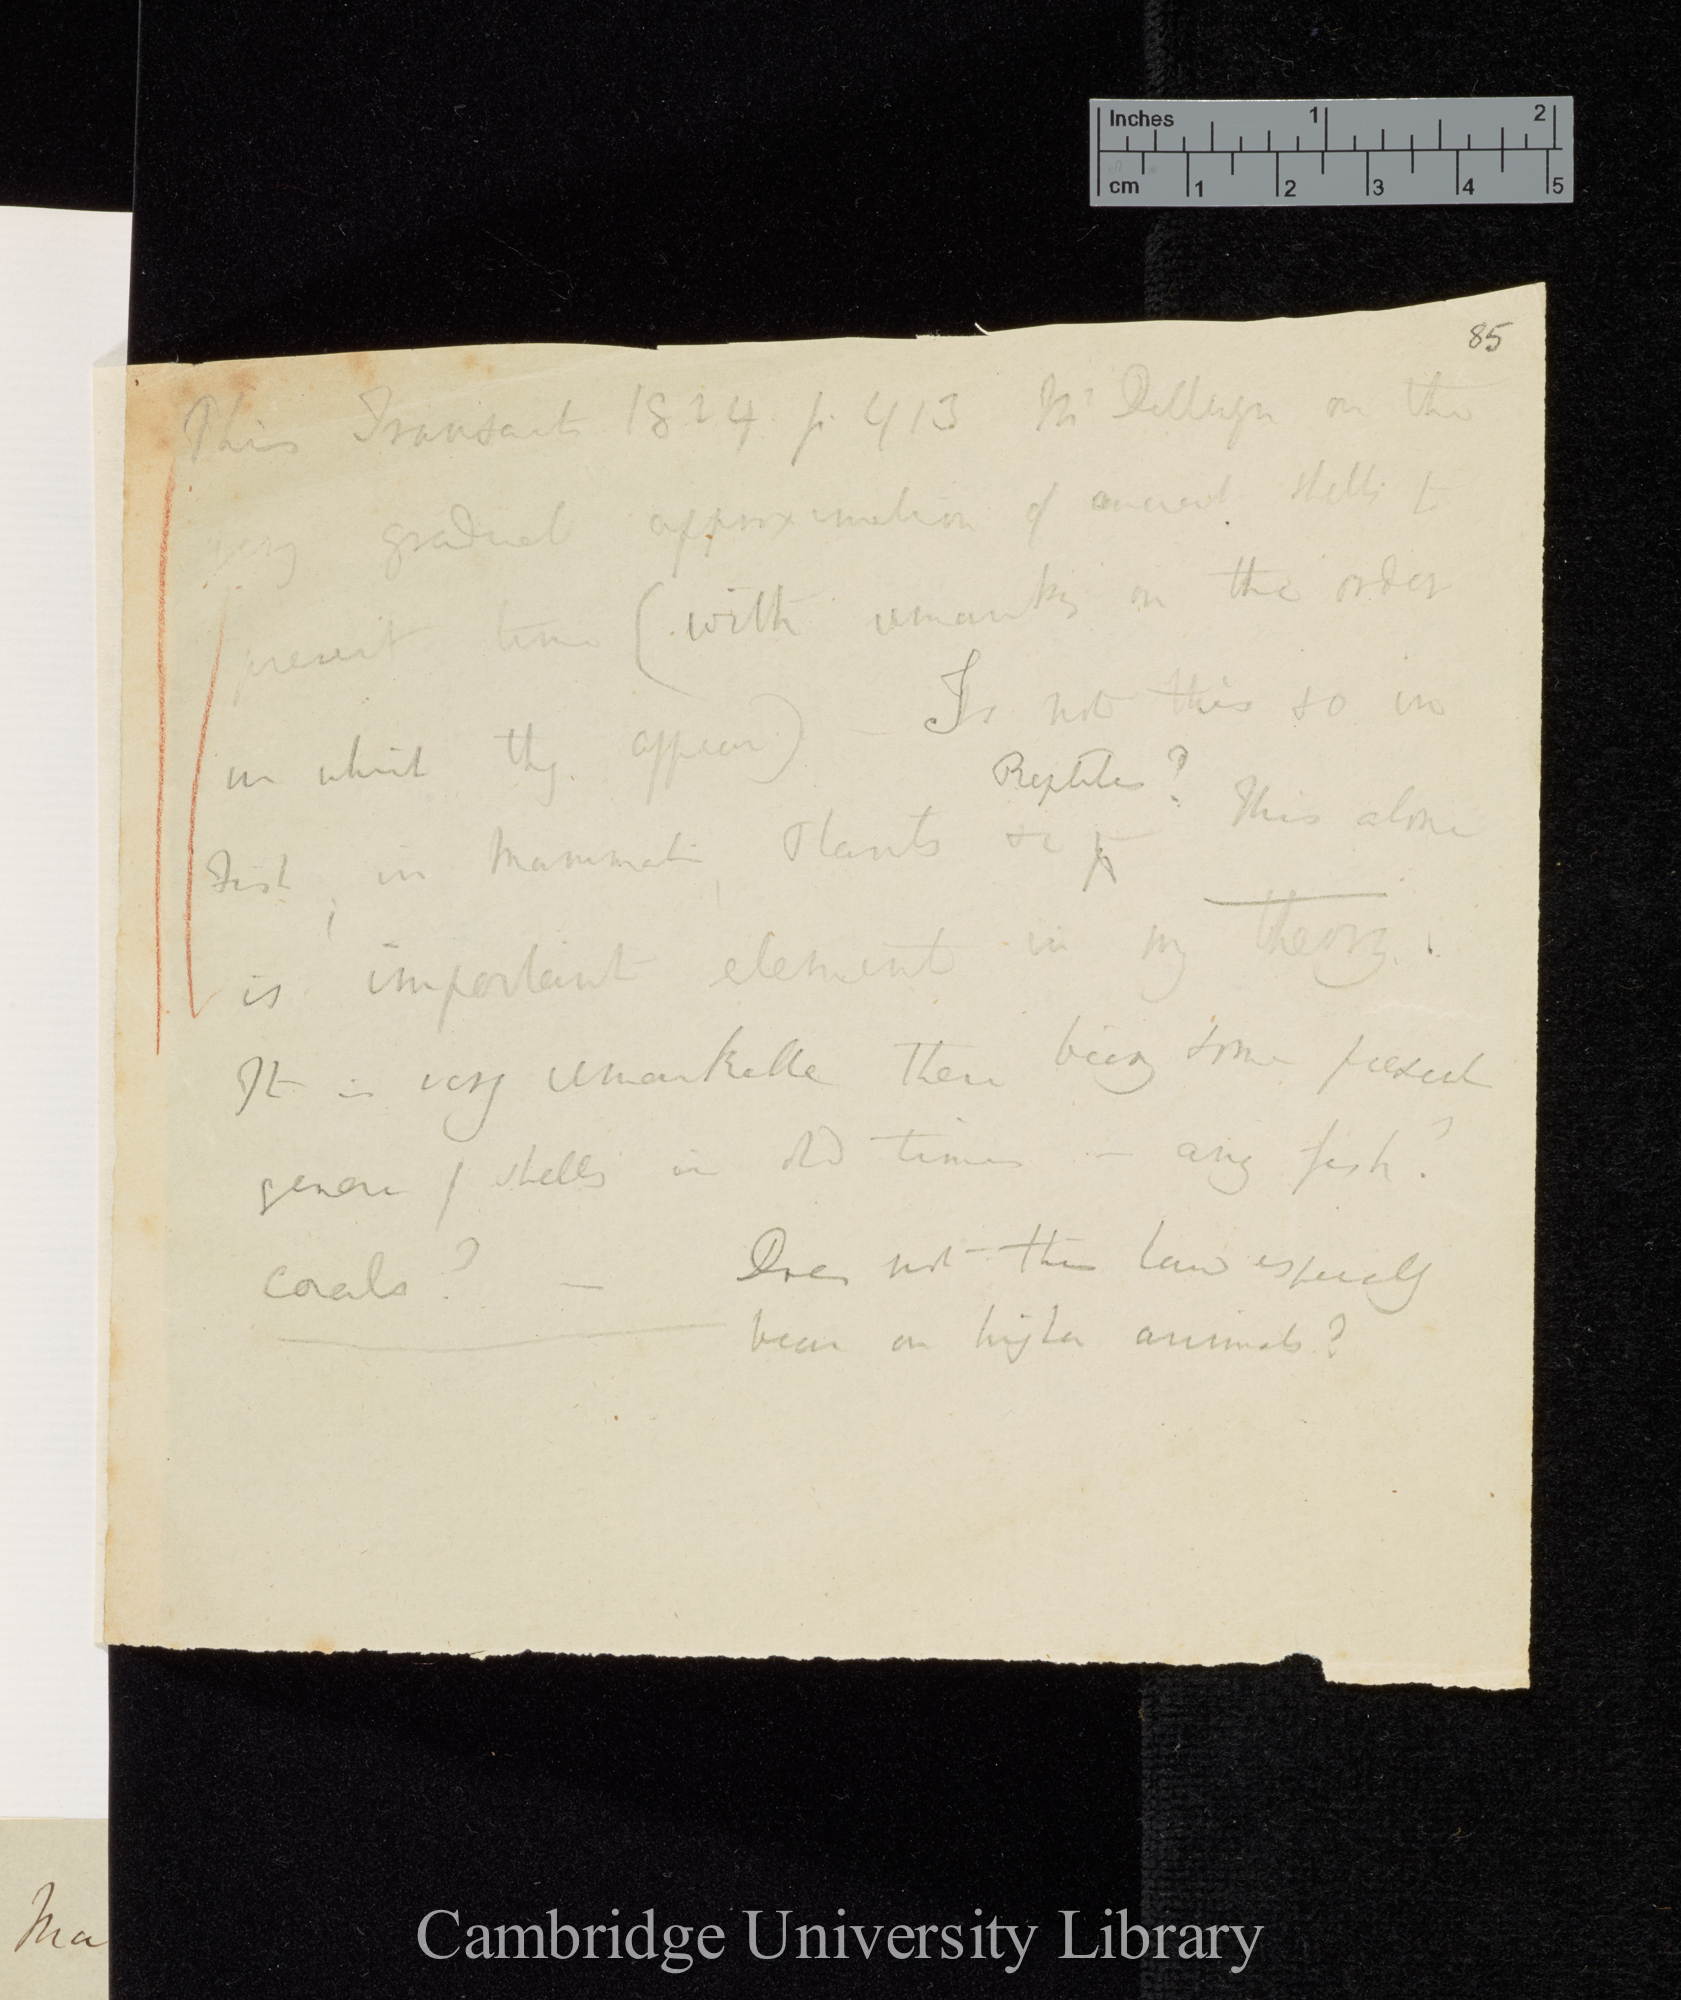 Inches 1 2
cm 1 2 3 4 5
85
Phil Transact 1824. p. 413 Mr Dillwyn on the
very gradual approximation of ancient shells to
present time (with remarks on the order
in which they appear) — Is not this so in
Reptiles?
Fish, in Mammalia, Plants &c This alone
is important element in my theory.
It is very remarkable there being some present
genera of shells in old times — any fish?
corals? — Does not this law especially
bear on higher animals?
Ma
Cambridge University Library